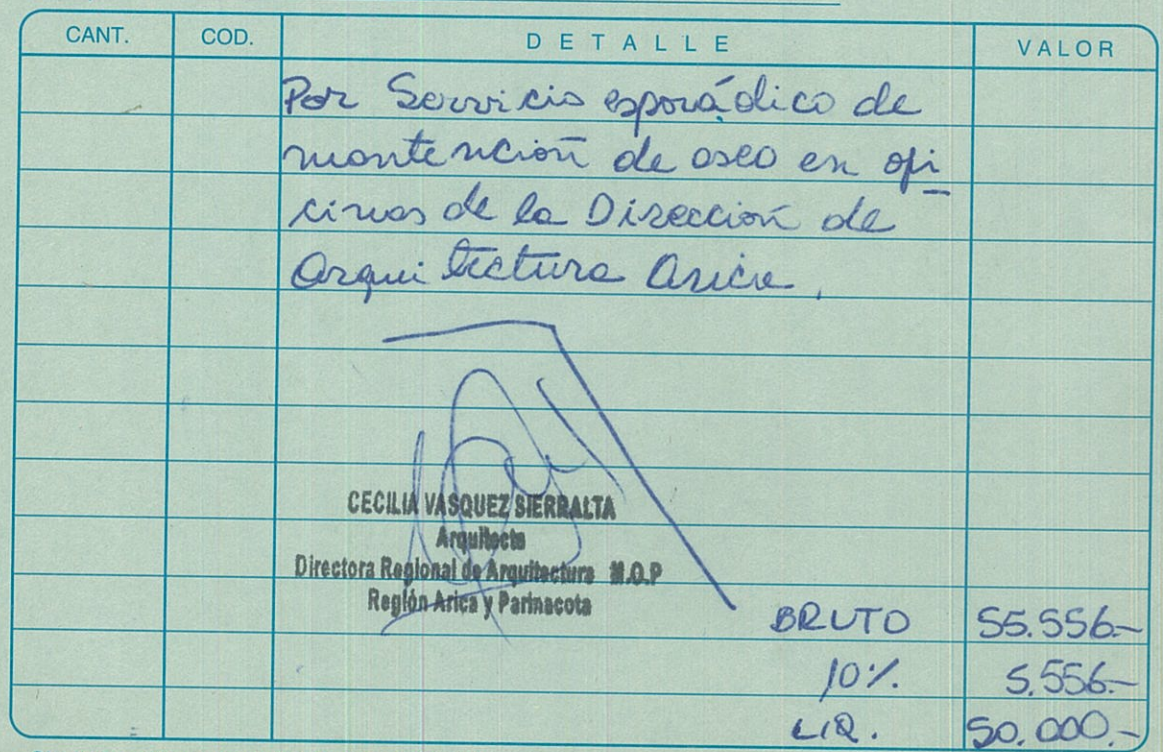 CANT. COD. DETALLE VALOR
Por Servicio esporádico de
mantención de aseo en ofi
cinas de la Dirección de
Arquitectura Arica.
CECILIA VASQUEZ SIERRALTA
Arquitecta
Directora Regional de Arquitectura M.O.P
Región Arica y Parinacota
BRUTO 55.556.-
10%. 5.556.-
LIQ. 50.000.-